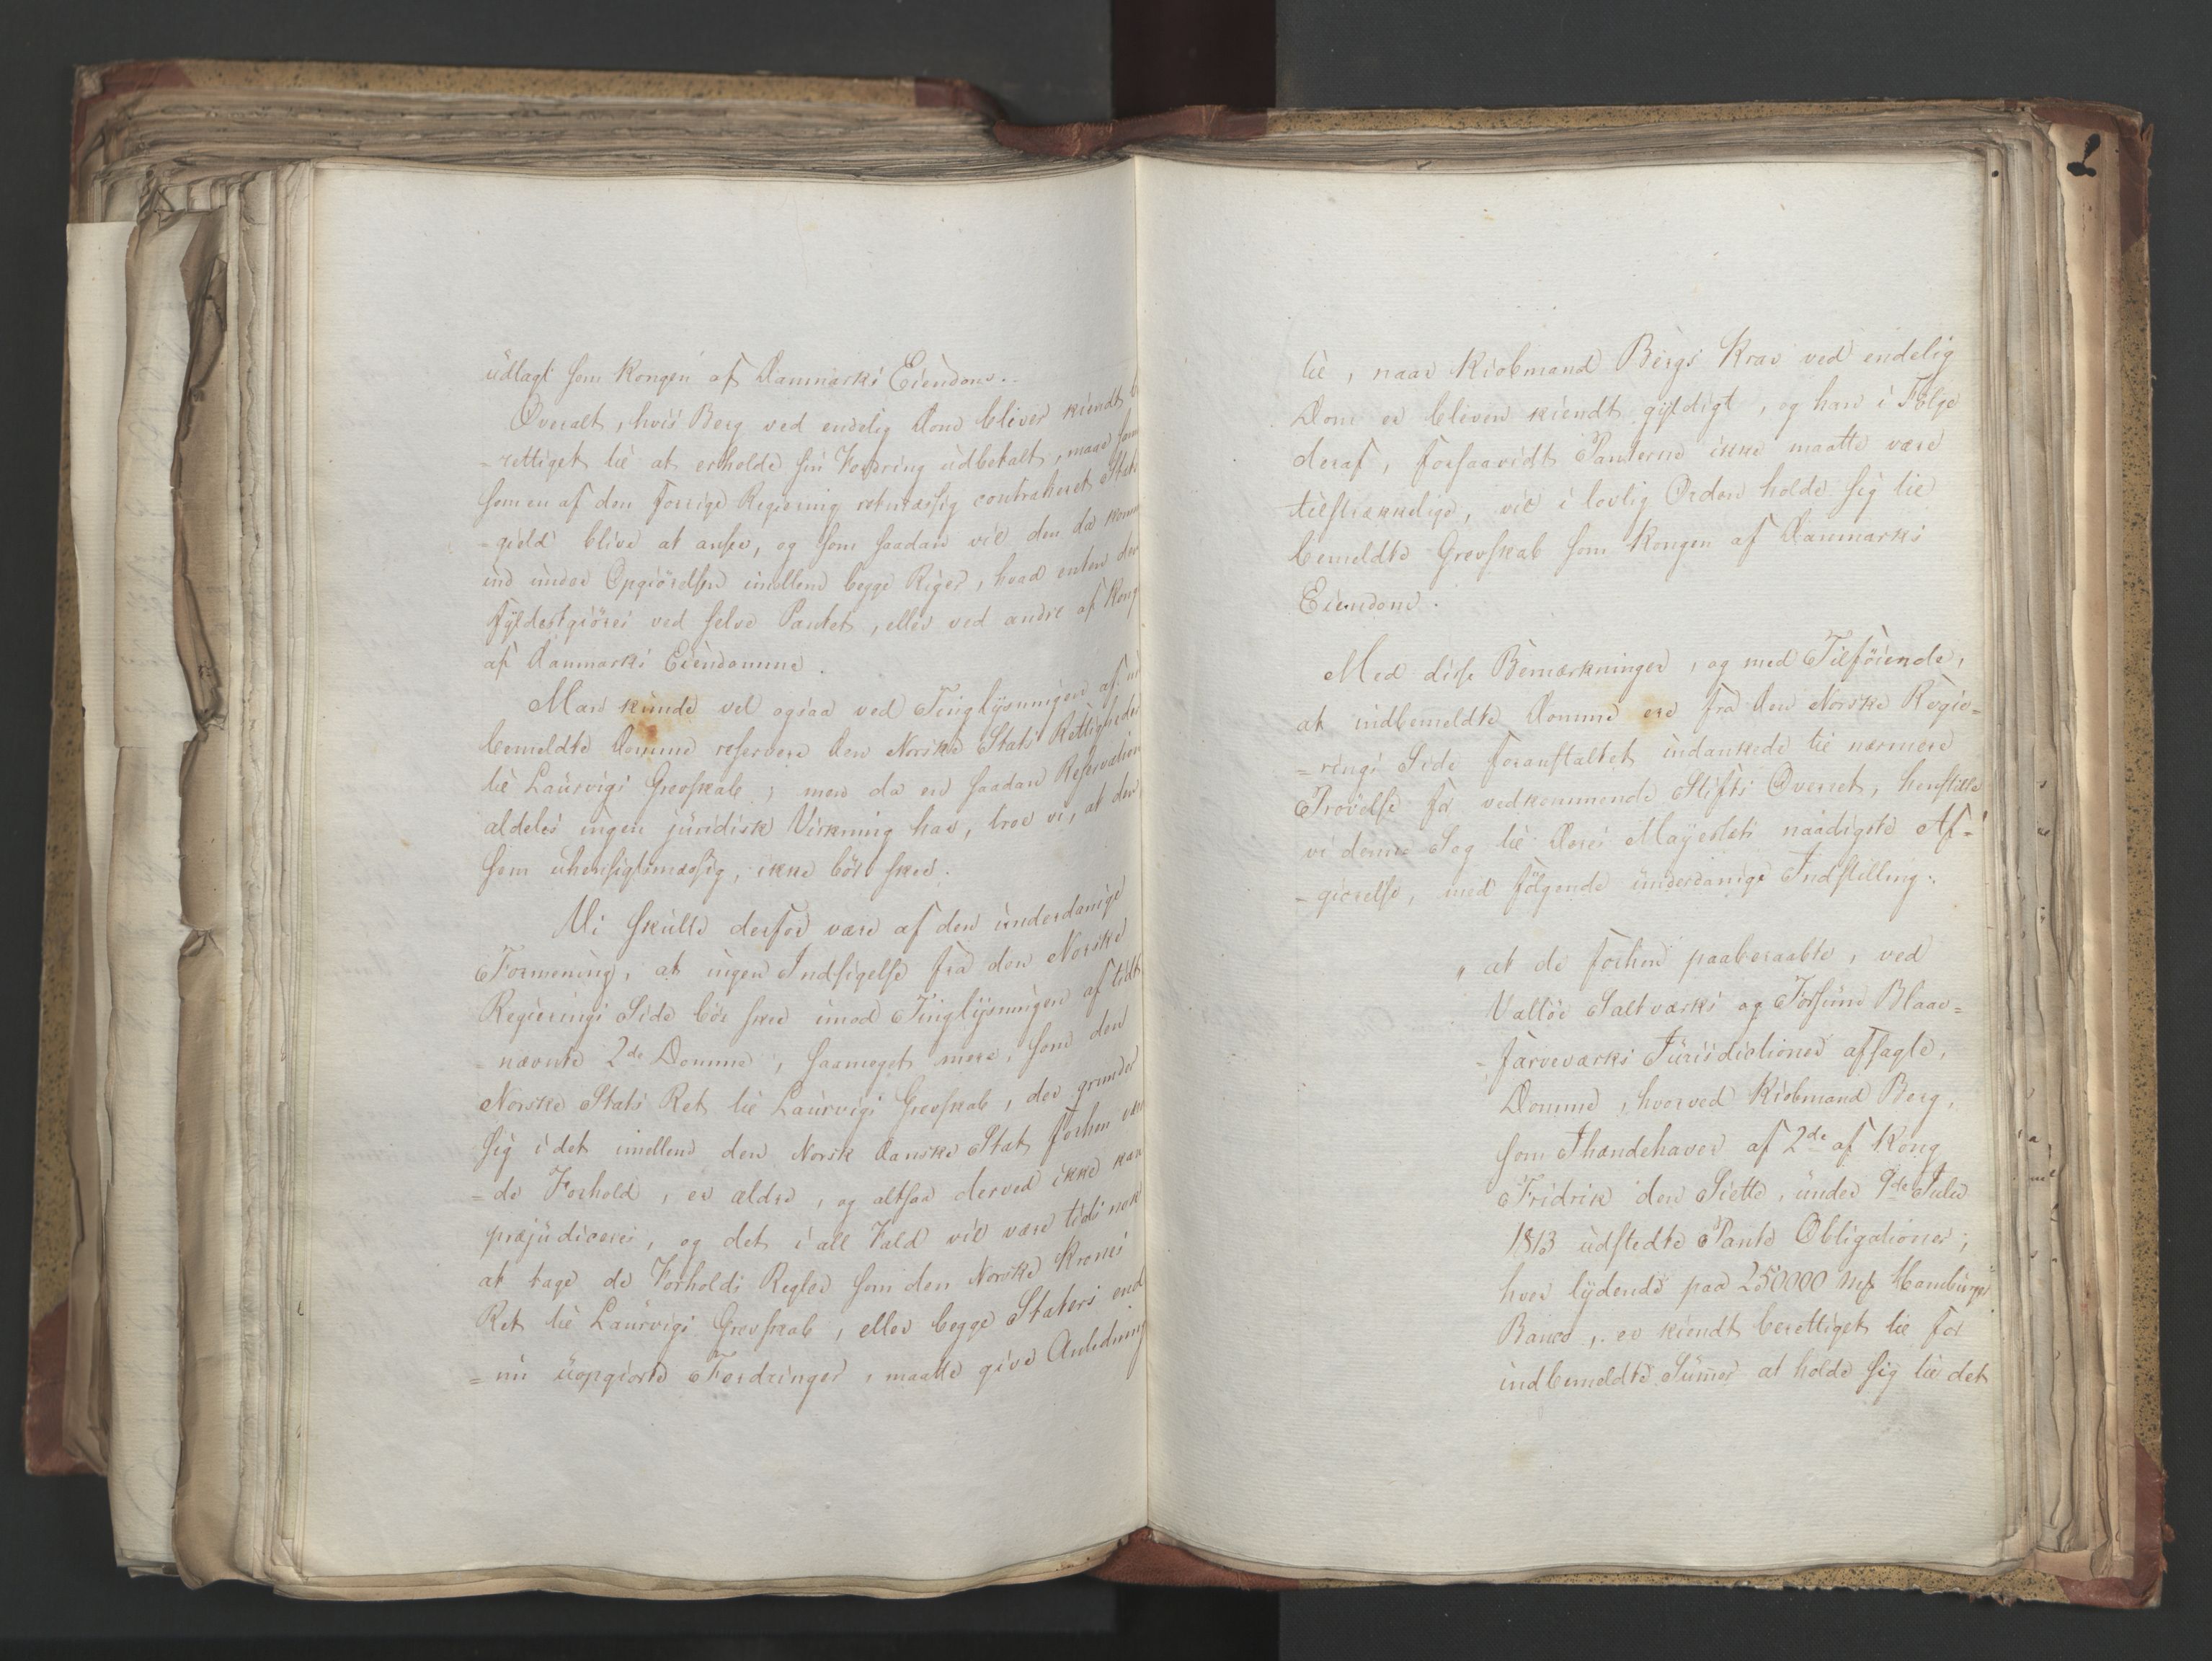 udlagt som Kongen af Danmarks Eiendom.
Overalt, hvis Berg ved endelig Dom bliver kiendt
-rettiget til at erholde sin Fordring udbetalt, maae
som en af den forrige Regiering retmæssig contraheret
-gield blive at ansee, og som saadan vil den da
ind under Opgiörelsen imellem begge Riger, hvad enten den
fyldestgiöres ved selve Pantet, eller ved andre af
af Danmarks Eiendomme.
Man kunde vel ogsaa ved Tinglysningen af
bemeldte Domme reservere den Norske Stats Rettigheder
til Laurvigs Grevskab; men da en saadan Reservation
aldeles ingen juridisk Virkning har, troe vi, at den
som uhensigtsmæssig, ikke bör skee.
Vi skulle derfor være af den underdanige
Formening, at ingen Indsigelse fra den Norske
Regierings Side bör skee imod Tinglysningen af tidt
-nævnte 2de Domme, saameget mere, som den
Norske Stats Ret til Laurvigs Grevskab, der grunder
sig i det imellem den Norsk Danske Stat forhen
-de Forhold, er ældre, og altsaa derved ikke kan
præjudiceres, og det i all Fald vil være tids nok
at tage de Forholds Regler som den Norske Krones
Ret til Laurvigs Grevskab, eller begge Staters end
=nu uopgiorte Fordringer, maatte give Anledning
til, naar Kiöbmand Bergs Krav ved endelig
Dom er bleven kiendt gyldigt, og han i Fölge
deraf, forsaavidt Panterne ikke maatte være
tilstrækkelige, vil i lovlig Orden holde sig til
bemeldte Grevskab som Kongen af Danmarks
Eiendom.
Med disse Bemærkninger, og med Tilföiende,
at indbemeldte Domme ere fra den Norske Regie=
=rings Side foranstaltet indankede til nærmere
Prövelse for vedkommende Stifts Overret, henstille
vi denne Sag til Deres Majestæts naadigste Af=
-giörelse, med fölgende underdanige Indstilling:
„at de forhen paaberaabte, ved
Vallöe Saltværks og Fossum Blaae=
-farveværks Jurisdictioner afsagte,
Domme, hvorved Kiöbmand Berg,
som Ihændehaver af 2de af Kong
Fridrik den Siette, under 9de Julii
1813 udstedte Pante Obligationer,
hver lydende paa 250000 Mk Hamburger
Banco, er kiendt berettiget til for
indbemeldte Summer at holde sig til det